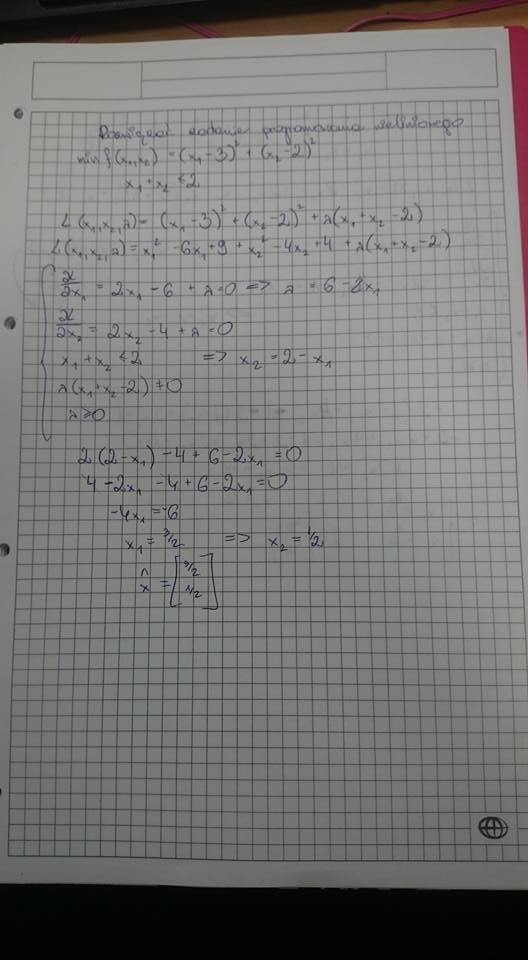 Rozwiązać zadanie programowania nieliniowego
min f(x₁,x₂) = (x₁-3)² + (x₂-2)²
x₁ + x₂ ≤ 2
L(x₁,x₂,λ) = (x₁-3)² + (x₂-2)² + λ(x₁+x₂-2)
L(x₁,x₂,λ) = x₁² - 6x₁ + 9 + x₂² - 4x₂ + 4 + λ(x₁+x₂-2)
∂L/∂x₁ = 2x₁ - 6 + λ = 0 => λ = 6 - 2x₁
∂L/∂x₂ = 2x₂ - 4 + λ = 0
x₁ + x₂ ≤ 2 => x₂ = 2 - x₁
λ(x₁+x₂-2) = 0
λ ≥ 0
2(2-x₁) - 4 + 6 - 2x₁ = 0
4 - 2x₁ - 4 + 6 - 2x₁ = 0
-4x₁ = -6
x₁ = 3/2 => x₂ = 1/2
x̂ = [3/2
1/2]